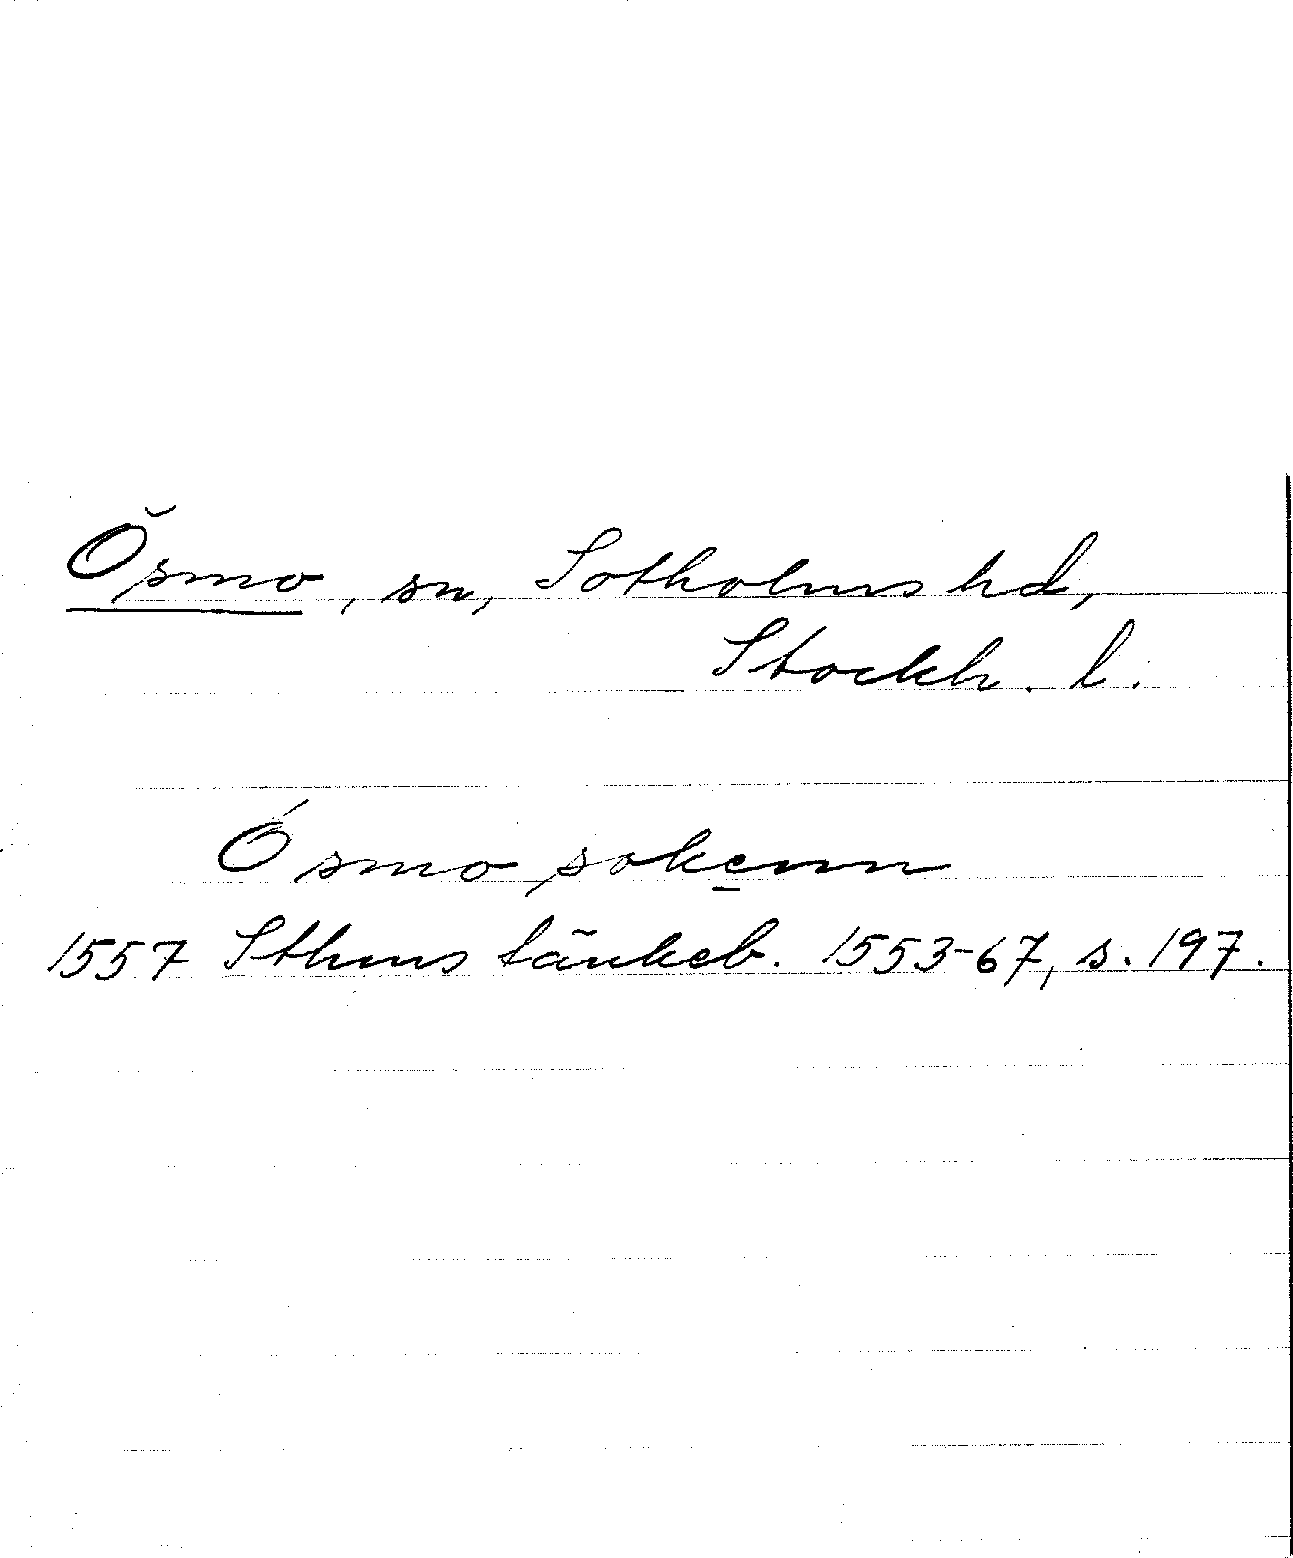 Ösmo, sn, Sotholms hd,
Stockh. l.
Ósmo sokenn
1557 Sthms tänkeb. 1553-67, s. 197.